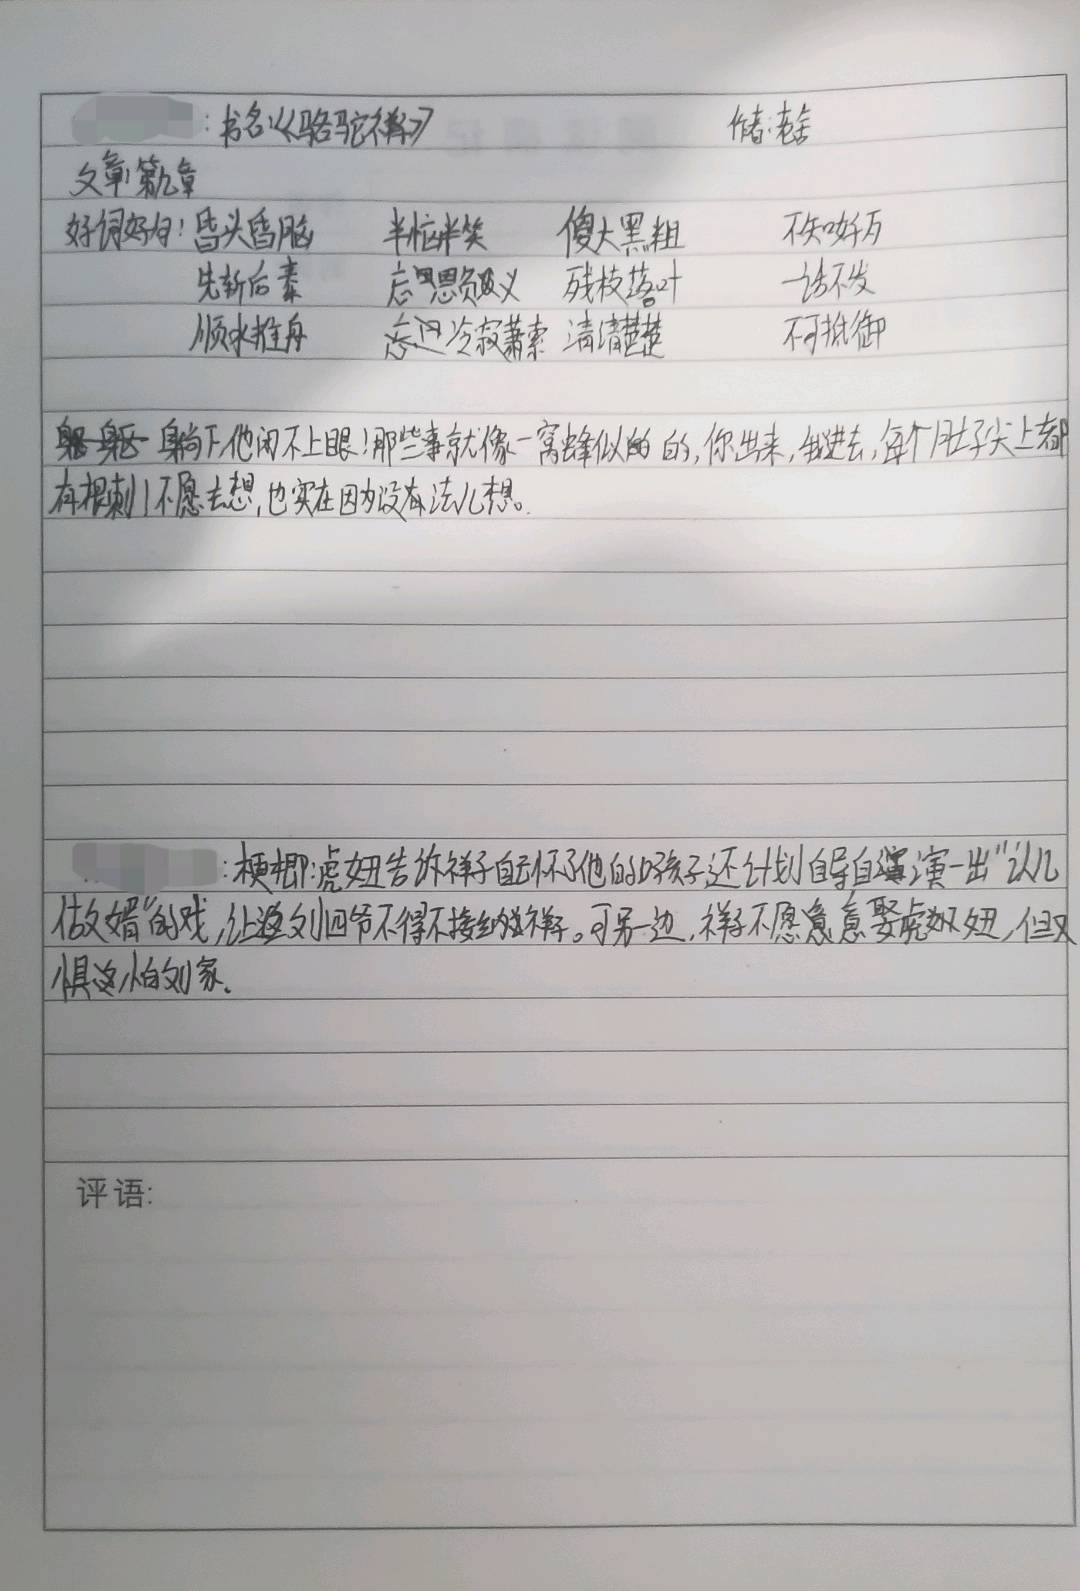 :书名:《骆驼祥子》 作者:老舍
文章:第九章
好词好句:昏头昏脑 半恼半笑 傻大黑粗 不知好歹
先斩后奏 忘恩负义 残枝落叶 一语不发
顺水推舟 冷寂萧索 清清楚楚 不可抵御
躺下他闭不上眼!那些事就像一窝蜂似的,你出来,我进去,每个肚子尖上都
有根刺!不愿去想,也实在因为没有法儿想。
:梗概:虎妞告诉祥子自己怀了他的孩子,还计划自导自演一出"认儿
做婿"的戏,让刘四爷不得不接纳祥子。可另一边,祥子不愿意娶虎妞,但又
惧怕刘家.
评语: